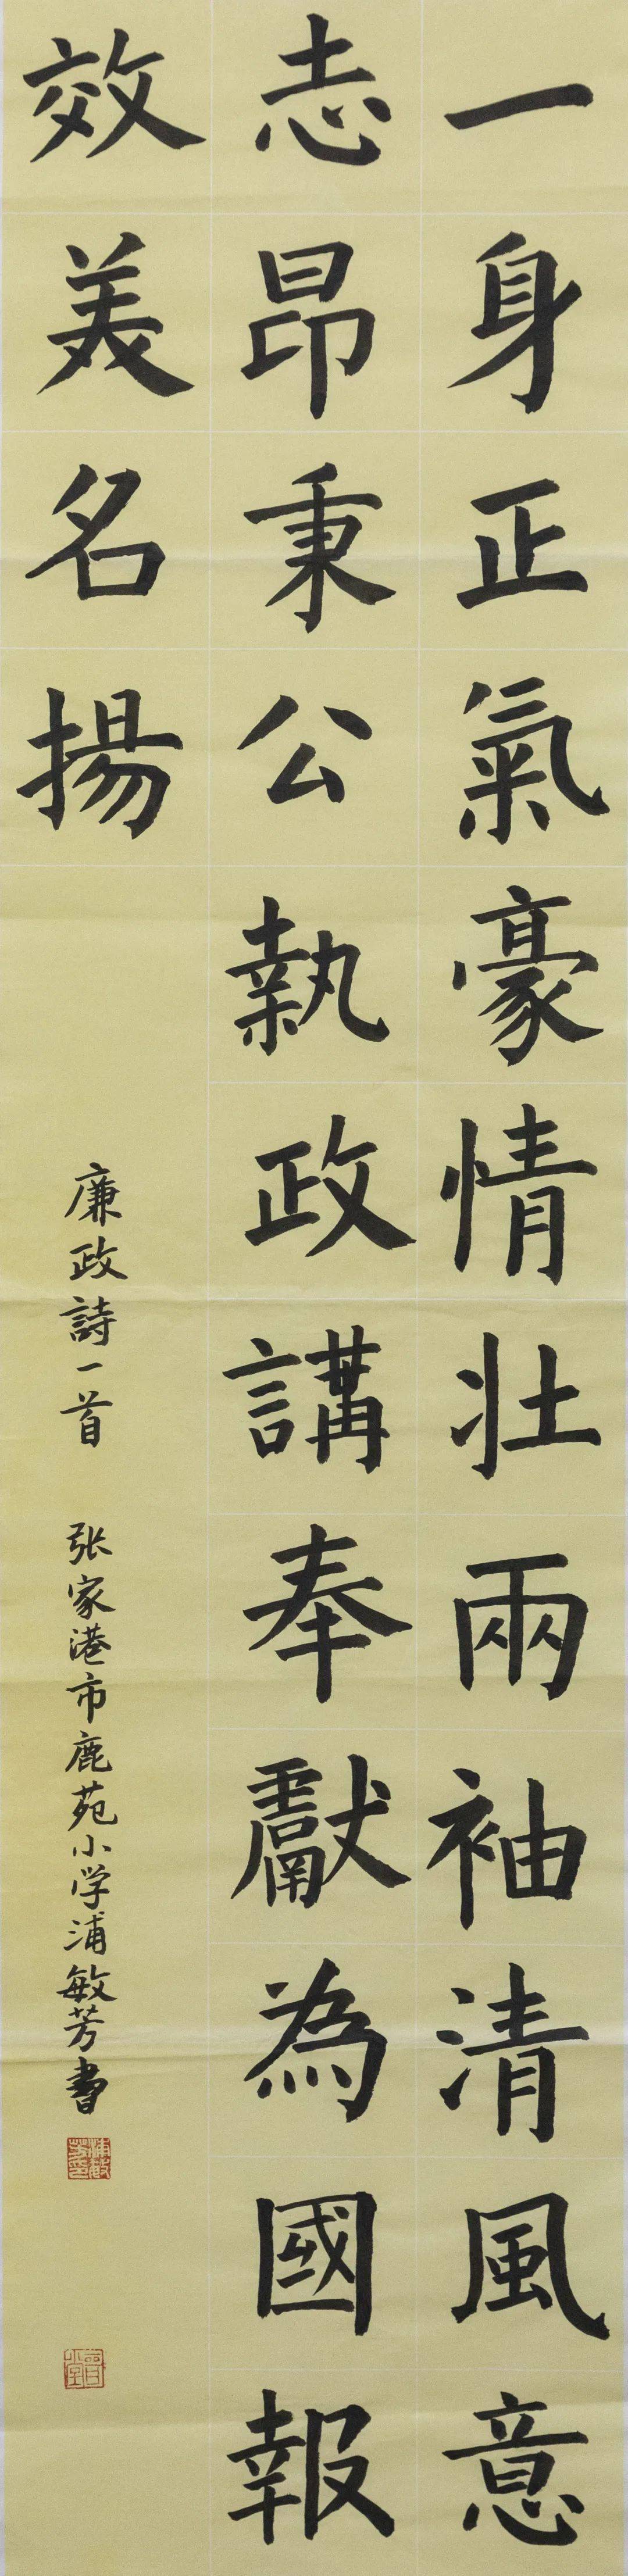 一身正氣豪情壯兩袖清風意
志昂秉公執政講奉獻為國報
效美名揚
廉政詩一首 张家港市鹿苑小学浦敏芳書